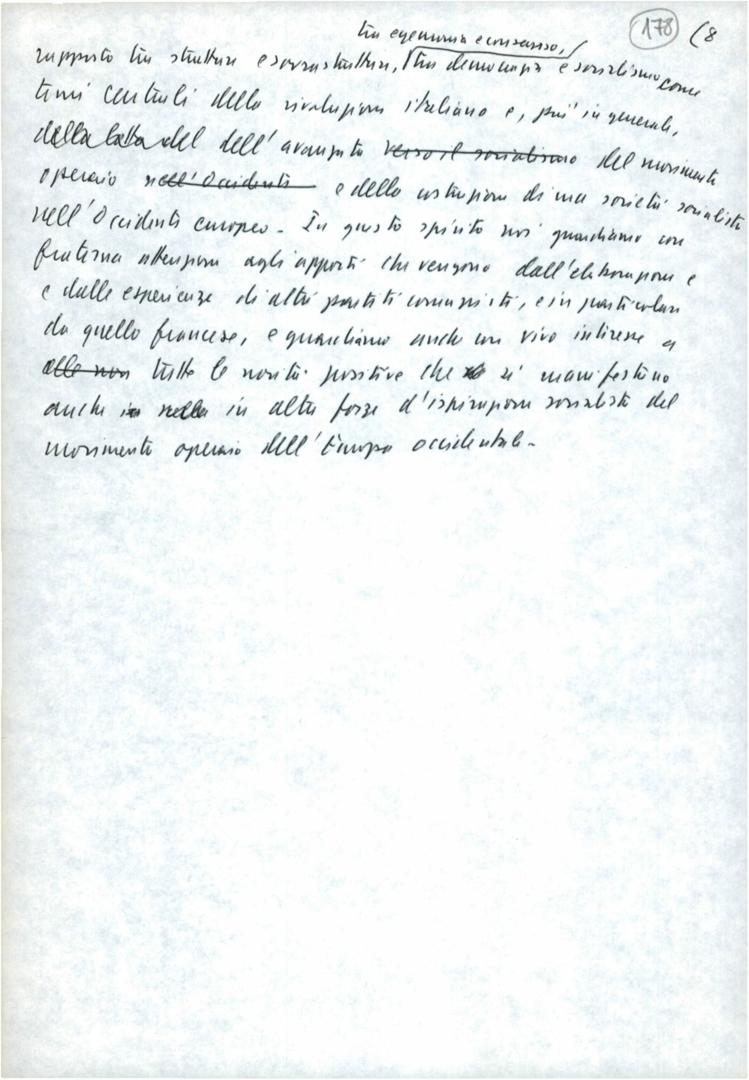 178 (8
tra egemonia e consenso,
rapporto tra struttura e sovrastruttura, tra democrazia e socialismo come
temi centrali della rivoluzione italiana e, piu' in generale,
della lotta del dell'avanzata verso il socialismo del movimento
operaio nell'Occidente e della costruzione di una società socialista
nell'Occidente europeo. In questo spirito noi guardiamo con
fraterna attenzione agli apporti che vengono dall'elaborazione e
e dalle esperienze di altri partiti comunisti, e in particolare
da quello francese, e guardiamo anche con vivo interesse a
alle non tutte le novità positive che si manifestano
anche in nella in altre forze d'ispirazione socialista del
movimento operaio dell'Europa occidentale.